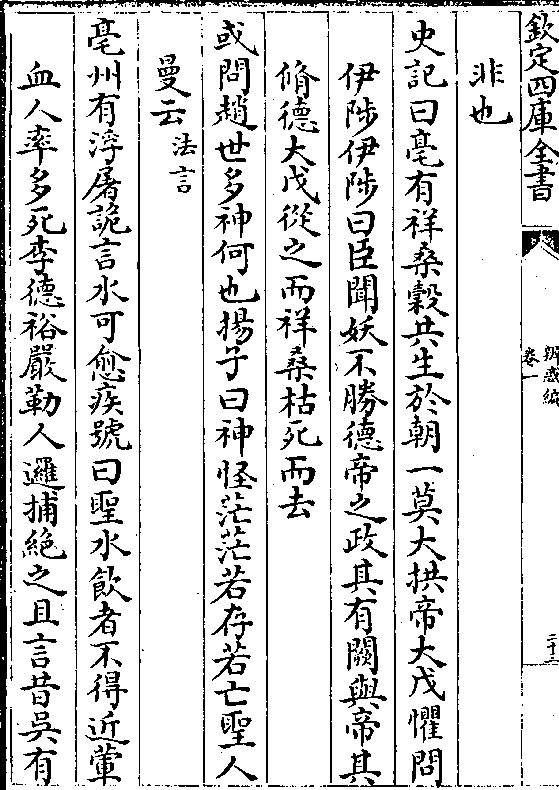 欽定四庫全書
辨惑編
卷一
二十三
非也
史記曰亳有祥桑穀共生於朝一莫大拱帝大戊懼問
伊陟伊陟曰臣聞妖不勝德帝之政其有闕與帝其
脩德大戊從之而祥桑枯死而去
或問趙世多神何也揚子曰神怪茫茫若存若亡聖人
曼云法言
亳州有浮屠詭言水可愈疾號曰聖水飲者不得近葷
血人率多死李德裕嚴勒人邏捕絶之且言昔吳有